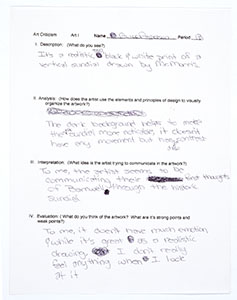 Art Criticism Art I Name Period
I. Description: (What do you see?)
It's a realistic black & white print of a
vertical sundial drawn by
II. Analysis: (How does the artist use the elements and principles of design to visually
organize the artwork?)
The dark background helps to make
the sundial more noticible, it doesn't
have any movement but has contrast
III. Interpretation: (What idea is the artist trying to communicate in the artwork?)
To me, the artist seems to be
communicating their thoughts
of through the historic
sundial
IV. Evaluation: (What do you think of the artwork? What are it's strong points and
weak points?)
To me, it doesn't have much emotion
while it's great as a realistic
drawing, I don't really
feel anything when I look
at it